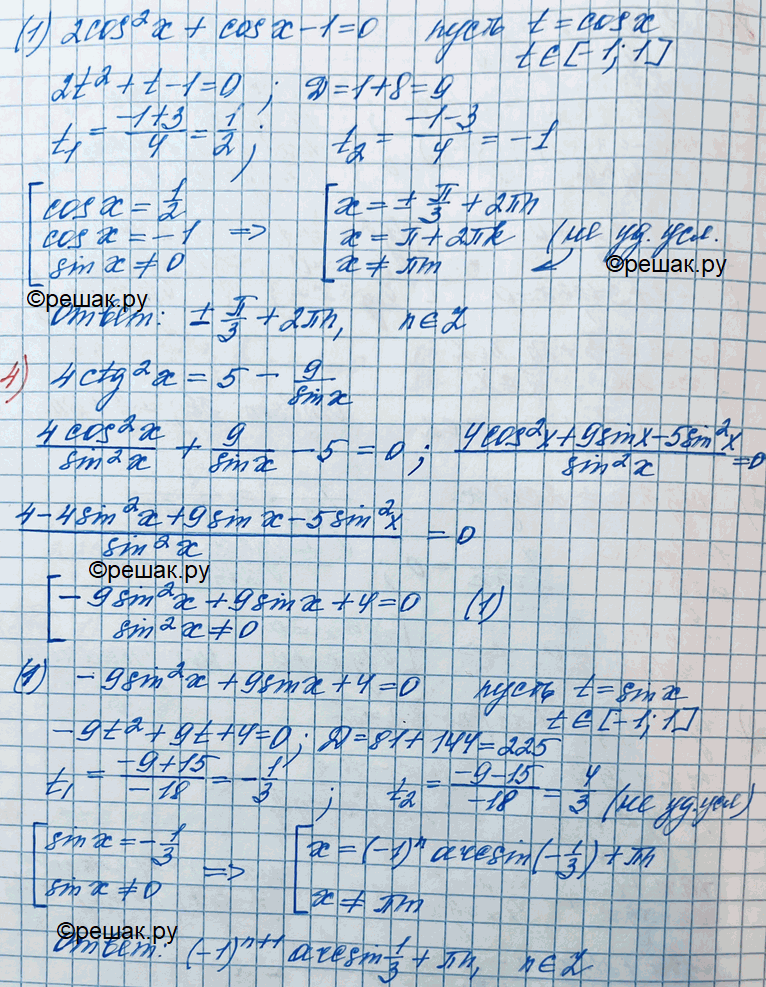 (1) 2cos²x + cosx - 1 = 0 пусть t = cosx
t ∈ [-1; 1]
2t² + t - 1 = 0 ; D = 1 + 8 = 9
t₁ = (-1+3)/4 = 1/2 ; t₂ = (-1-3)/4 = -1
[ cosx = 1/2 [ x = ± π/3 + 2πn
cosx = -1 => x = π + 2πk (не уд. усл.
sinx ≠ 0 x ≠ πm
©решак.ру
©решак.ру
Ответ: ± π/3 + 2πn, n ∈ Z
4) 4ctg²x = 5 - 9/sinx
4cos²x/sin²x + 9/sinx - 5 = 0 ; (4cos²x + 9sinx - 5sin²x)/sin²x = 0
(4 - 4sin²x + 9sinx - 5sin²x)/sin²x = 0
©решак.ру
[ -9sin²x + 9sinx + 4 = 0 (1)
sin²x ≠ 0
(1) -9sin²x + 9sinx + 4 = 0 пусть t = sinx
t ∈ [-1; 1]
-9t² + 9t + 4 = 0 ; D = 81 + 144 = 225
t₁ = (-9+15)/-18 = -1/3 ; t₂ = (-9-15)/-18 = 4/3 (не уд. усл)
[ sinx = -1/3 => [ x = (-1)ⁿ arcsin(-1/3) + πn
sinx ≠ 0 x ≠ πm
©решак.ру
Ответ: (-1)ⁿ⁺¹ arcsin 1/3 + πn, n ∈ Z